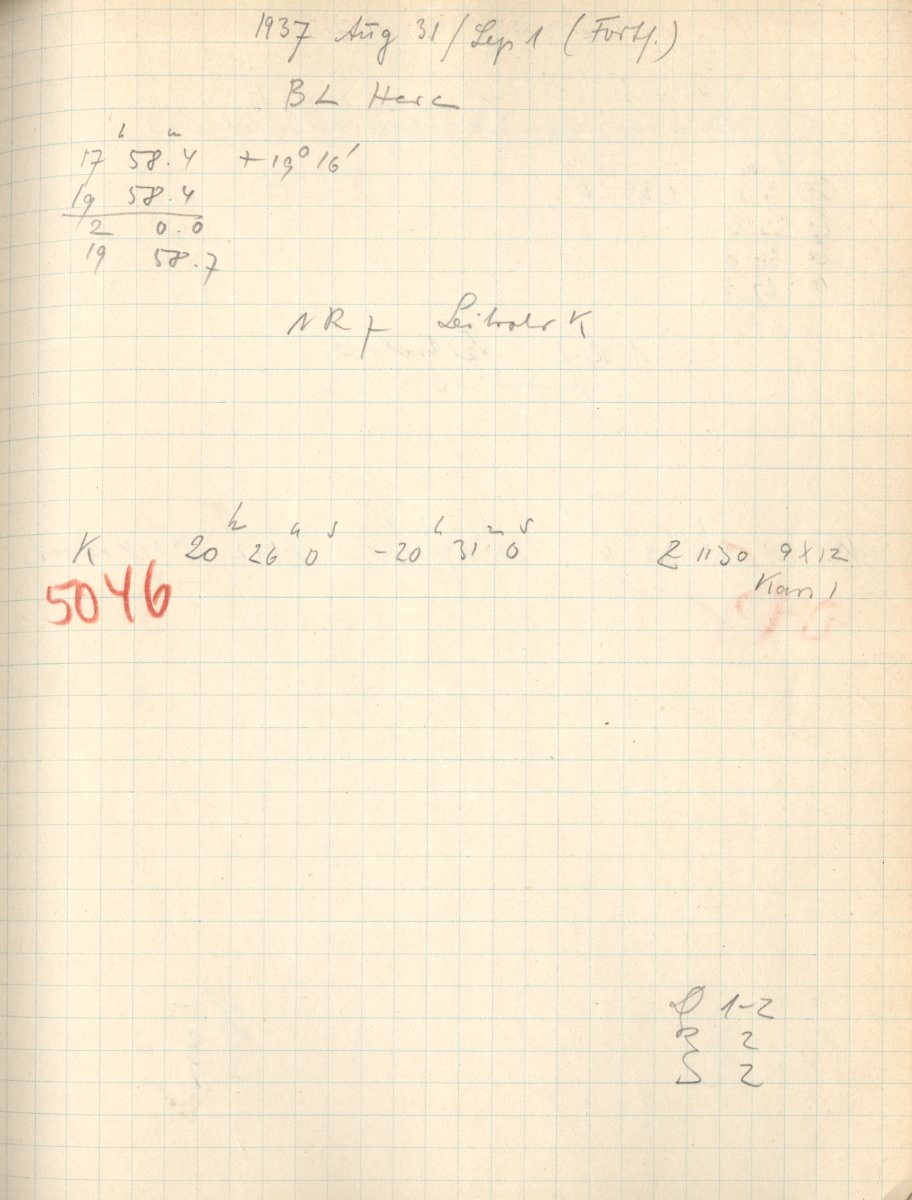 1937 Aug 31/Sep 1 (Fortf.)
BL Herc
17h 58.m4 +19° 16'
19 58.4
2 0.0
19 58.7
NR 7 Leitrohr K
K 20h 26m 0s -20h 31m 0s Z 1130 9x12
5046 Kass 1
L 1-2
R 2
S 2